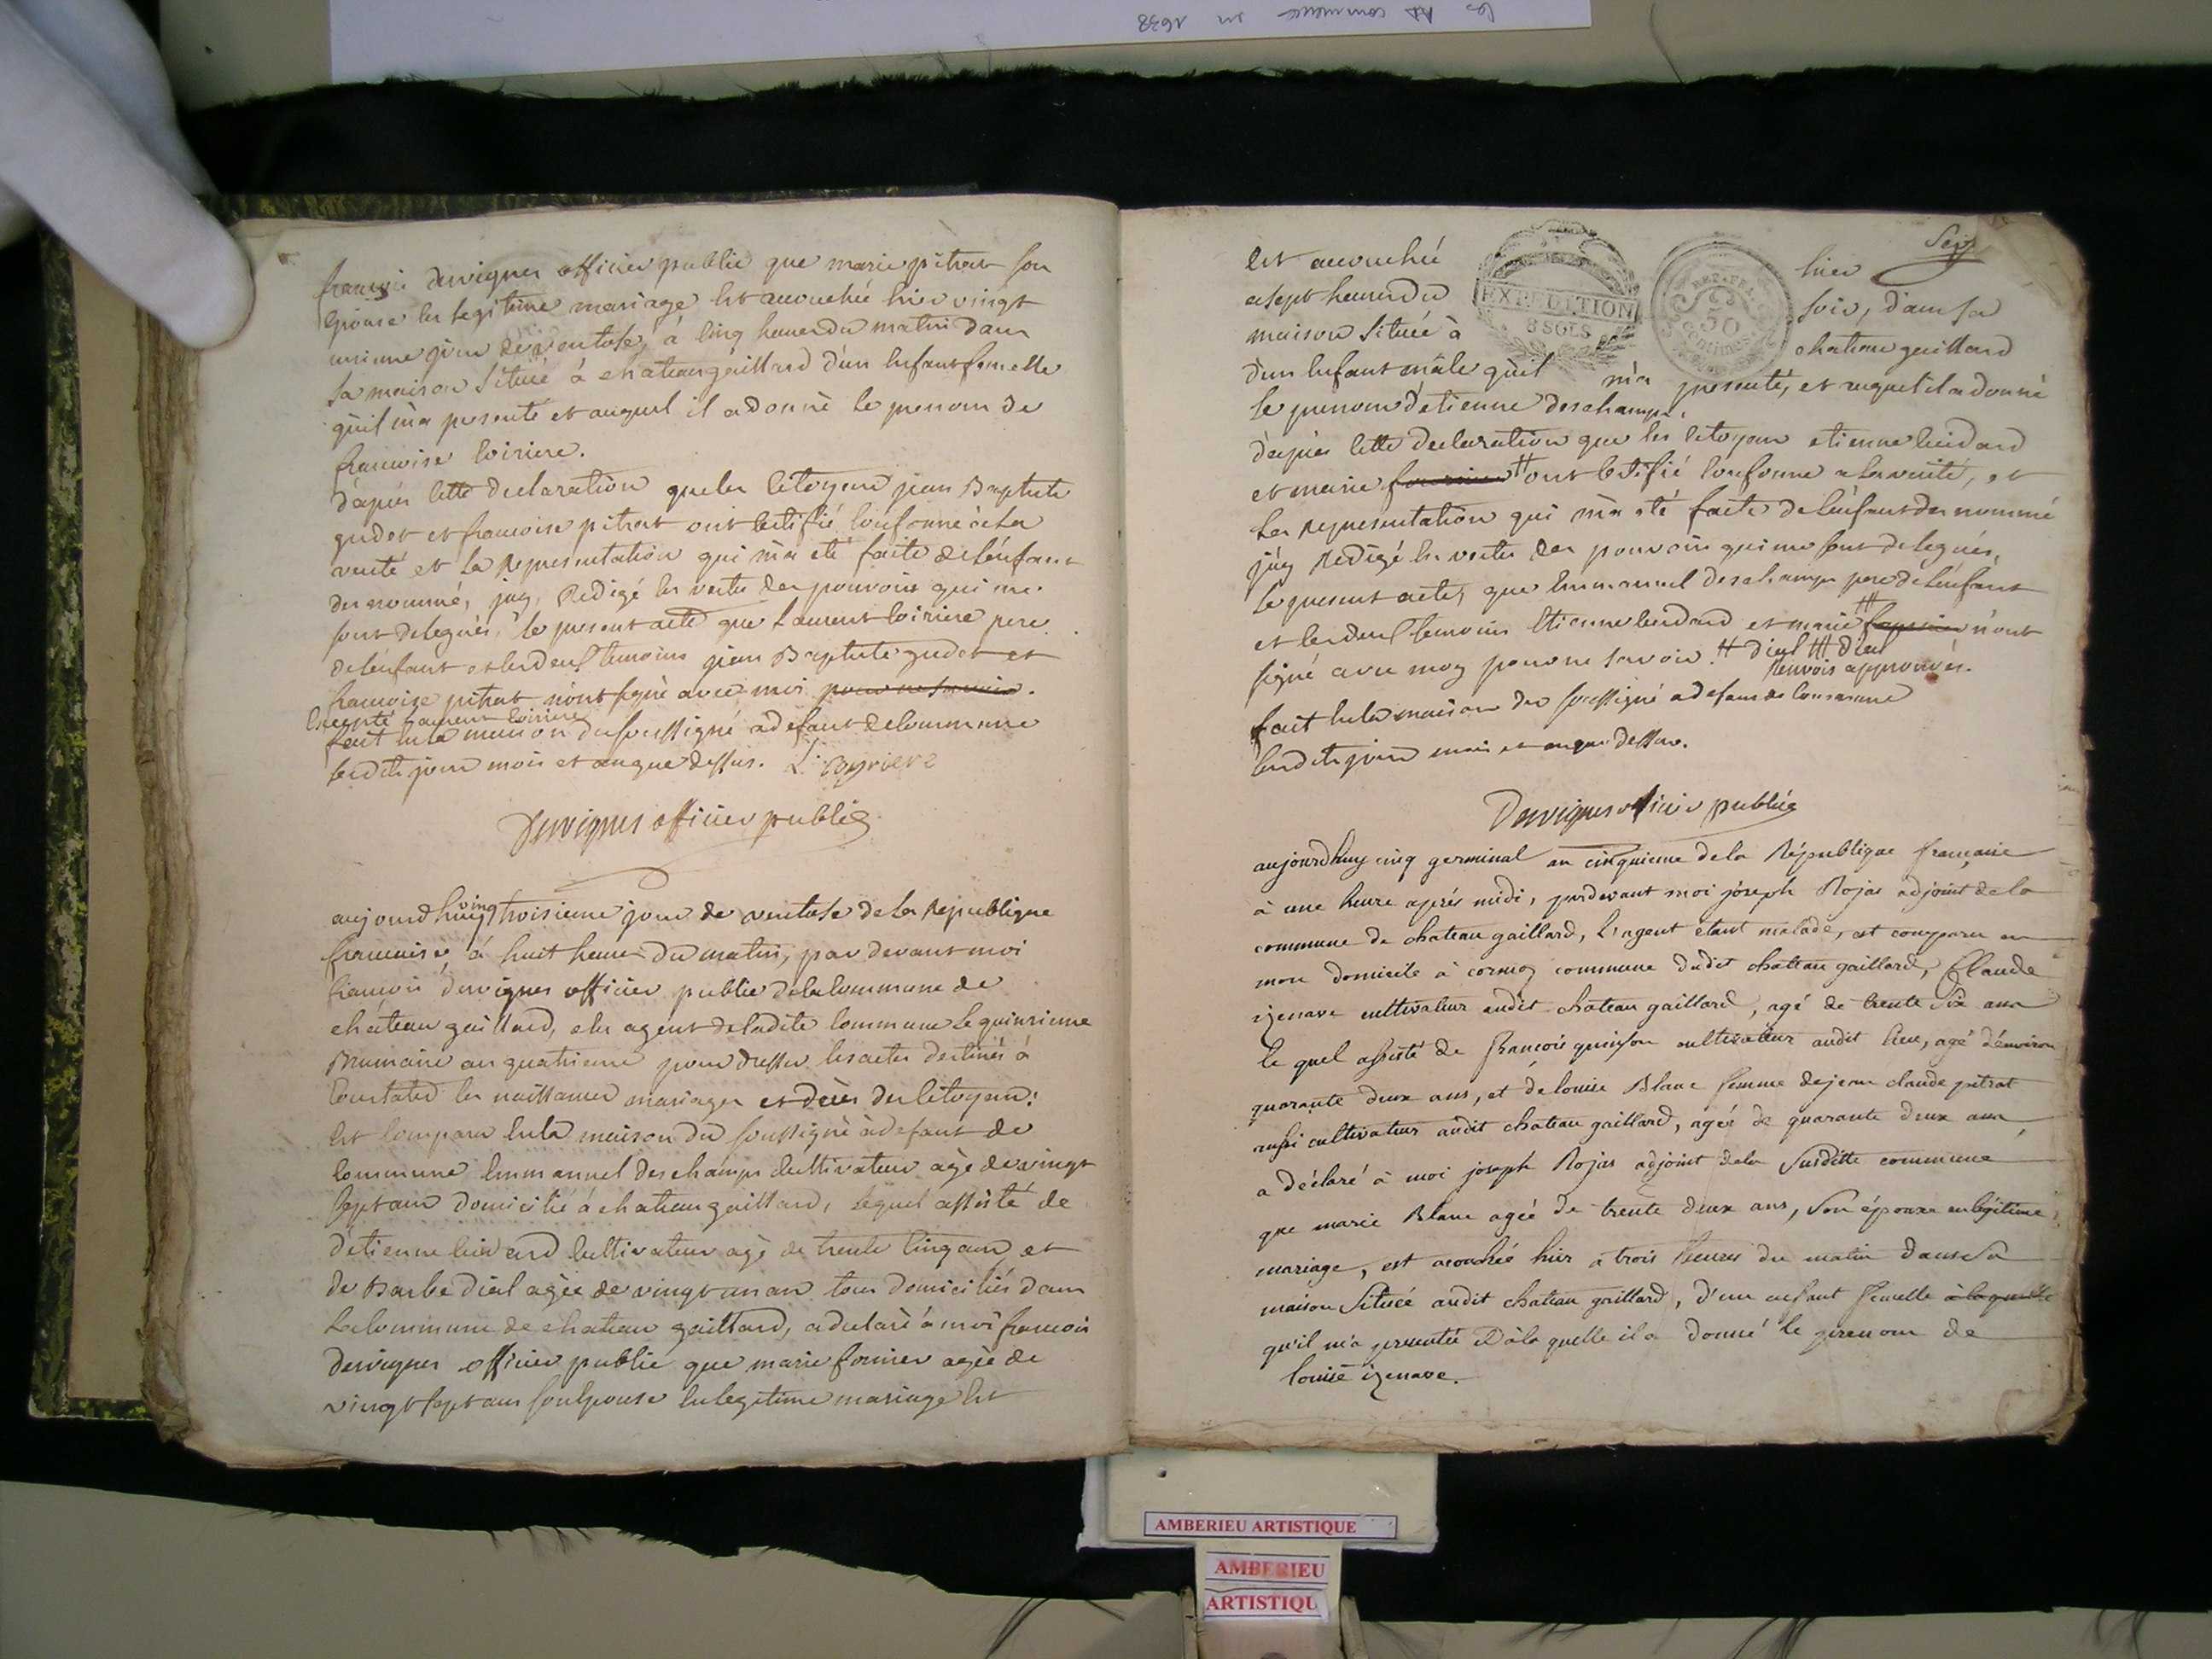 les AD commence en 1638
françois desvignes officier public que marie pitrat son
Epouse en legitime mariage est accouchée hier vingt
unieme jour de ventose, à cinq heures du matin dans
sa maison située à chateaugaillard d'un enfant femelle
qu'il m'a presenté et auquel il a donné le prenom de
francoise loiriere.
d'après cette declaration que les citoyens jean Baptiste
gudet et francoise pitrat ont certifié conforme à la
verité et la representation qui m'a été faite de l'enfant
denommé, j'ay, Redigé en vertu des pouvoirs qui me
sont delegués, le present acte que Laurent loiriere pere
de l'enfant et les deux temoins jean Baptiste gudet et
francoise pitrat n'ont signé avec moi pour ne savoir.
Excepté Laurent loiriere
fait en la maison du soussigné a defaut de commune
lesdits jour mois et an que dessus. L: oyriere
Desvignes officier public
aujourdhuy vingt troisieme jour de ventose de la Republique
francaise, à huit heures du matin, par devant moi
francois desvignes officier public de la commune de
chateau gaillard, elu agent de ladite commune le quinzieme
Brumaire an quatrieme pour dresser les actes destinés à
Constater les naissances mariages et décès des citoyens:
Est comparu en la maison du soussigné à defaut de
commune Emmanuel deschamps cultivateur agé de vingt
sept ans domicilié à chateau gaillard, lequel assisté de
d'etienne leidard cultivateur agé de trente cinq ans et
de Barbe diel agée de vingt un an tous domiciliés dans
la commune de chateau gaillard, a declaré à moi francois
desvignes officier public que marie fornier agée de
vingt sept ans son epouse en legitime mariage Est
Sept
Est accouchée hier
a sept heures du soir, dans sa
maison située à chateau gaillard
EXPEDITION
3 SOLS
REP. FRA.
50
centimes
d'un enfant mâle qu'il m'a presenté, et auquel il a donné
le prenom d'etienne deschamps.
d'après cette declaration que les citoyens etienne leidard
et marie fournier # ont certifié conforme a la verité, et
la representation qui m'a été faite de l'enfant denommé
j'ay Redigé en vertu des pouvoirs qui me sont delegués,
le present acte, que Emmanuel deschamps pere de l'enfant
et les deux temoins Etienne leidard et marie # n'ont
signé avec moy pour ne savoir. # diel # diel
Renvois approuvés.
fait en la maison du soussigné a defaut de commune
lesdits jour mois et an que dessus.
Desvignes officier public
aujourdhuy cinq germinal an cinquieme de la République française
à une heure après midi, pardevant moi joseph Rojas adjoint de la
commune de chateau gaillard, L'agent étant malade, est comparu en
mon domicile à cormoz commune dudit chateau gaillard, Claude
izenave cultivateur audit chateau gaillard, agé de trente six ans
le quel assisté de François quinson cultivateur audit lieu, agé d'environ
quarante deux ans, et de louise Blanc femme de jean claude pitrat
aussi cultivateur audit chateau gaillard, agée de quarante deux ans
a déclaré à moi joseph Rojas adjoint de la susditte commune
que marie Blanc agée de trente deux ans, son épouse en légitime
mariage, est acouchée hier à trois heures du matin dans sa
maison située audit chateau gaillard, d'un enfant femelle à laquelle
qu'il m'a presentée et à la quelle il a donné le prenom de
louise izenave.
AMBERIEU ARTISTIQUE
AMBERIEU
ARTISTIQU